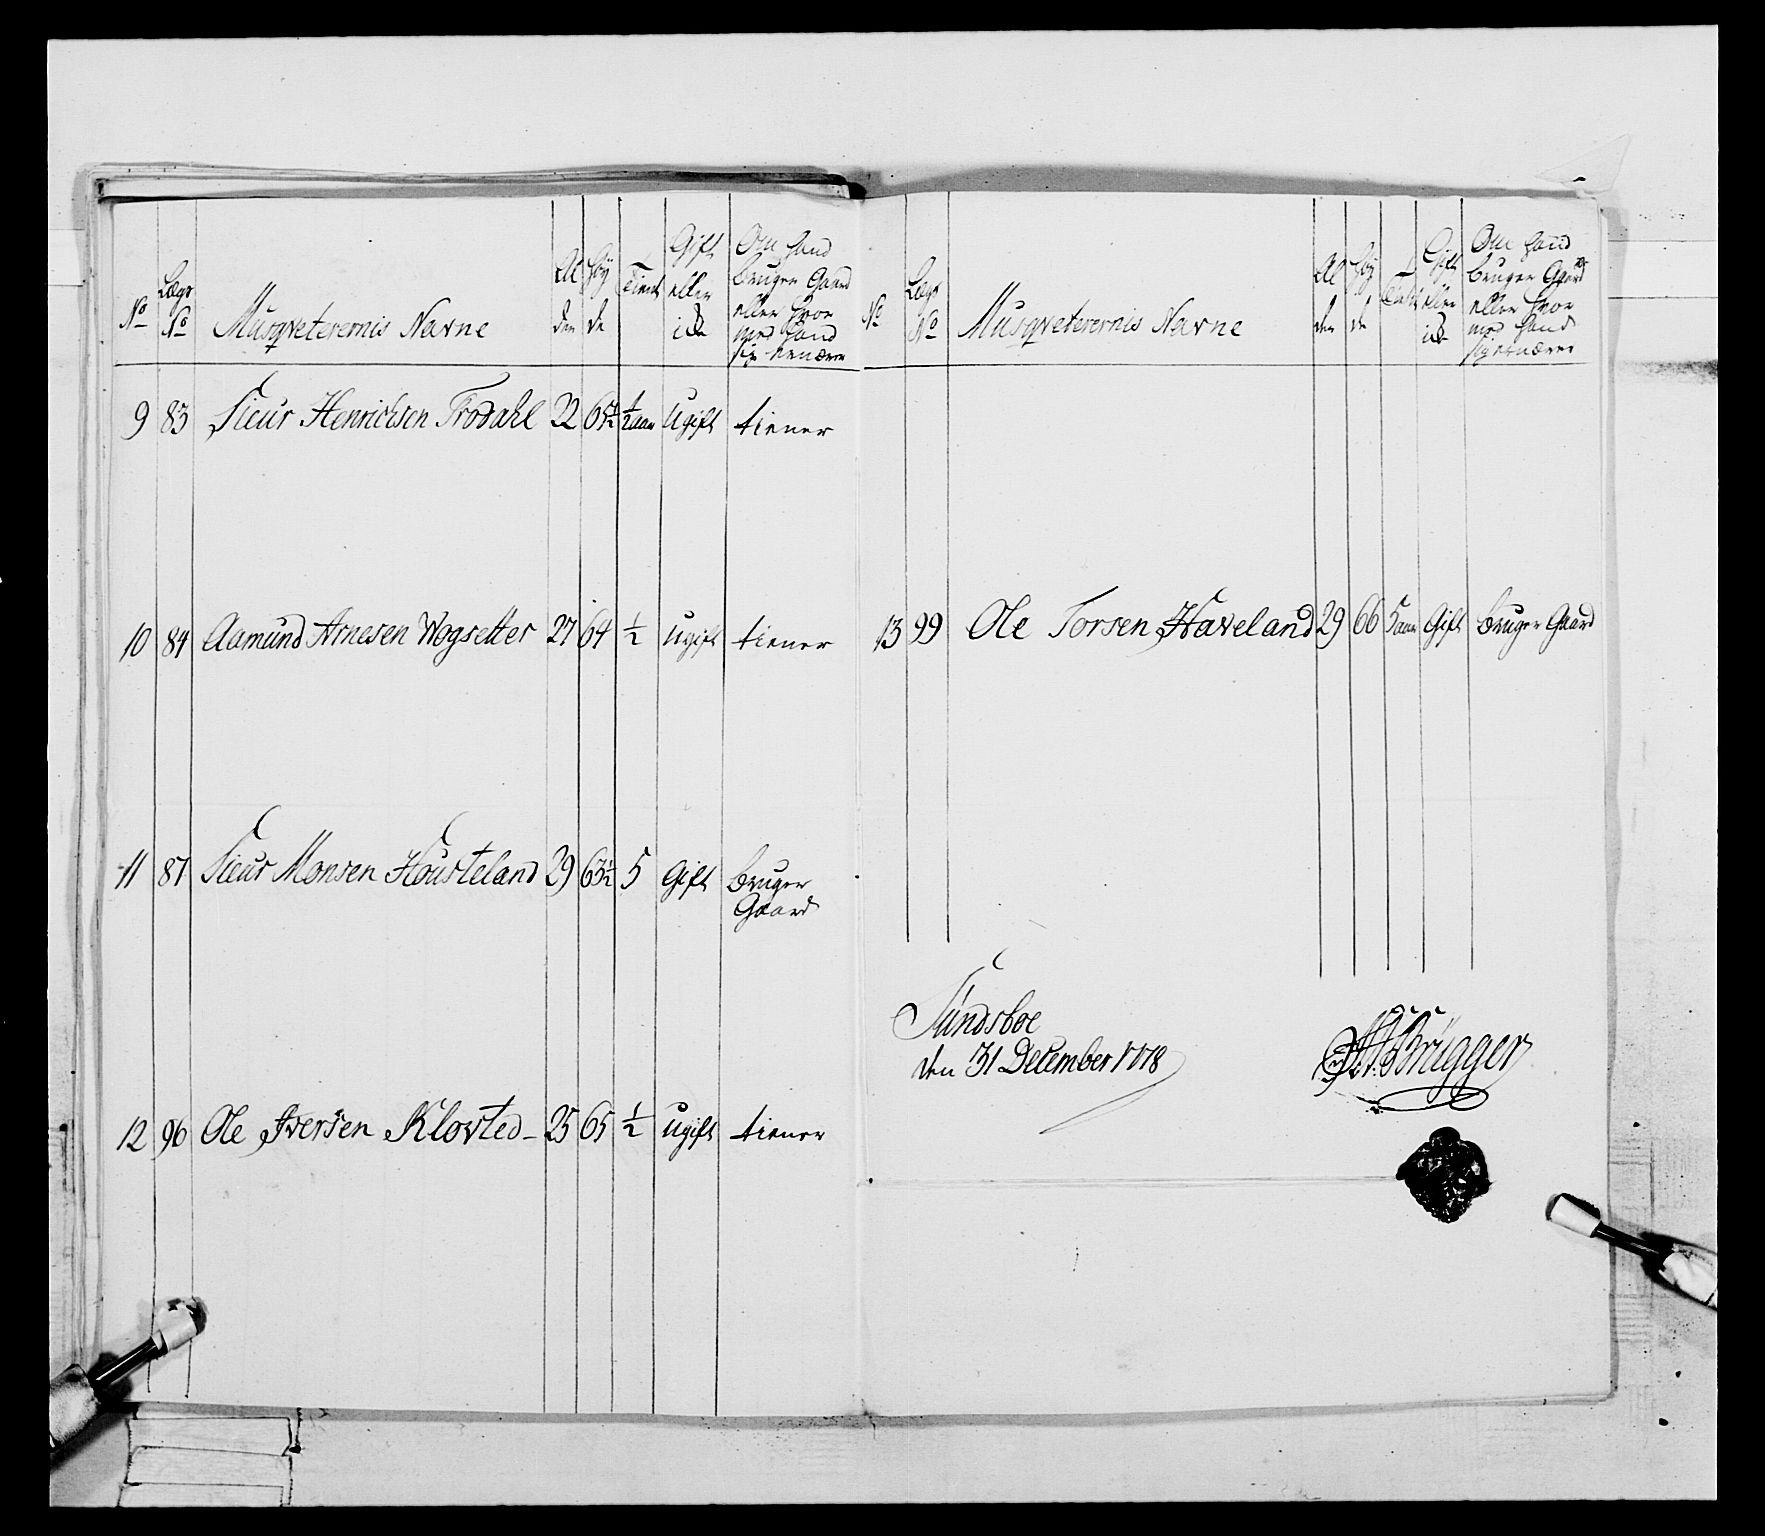 No
Lægs No
Musqveterernis Navne
Al den
Høy de
Tient
Gift eller ide
Om hand
bruger Gaard
eller hvor
med hand
sig ernærer
9 83 Sieur Henrichsen Trodahl 22 65½ ½ aar Ugift tiener
10 84 Aamund Arnesen Wogsetter 27 64 ½ Ugift tiener
11 87 Sieur Monsen Housteland 29 63½ 5 Gift bruger
Gaard
12 96 Ole Iversen Klovsted 25 65 ½ Ugift tiener
No
Lægs No
Musqveterernis Navne
Al den
Høy de
Tient
Gift eller ide
Om hand
bruger Gaard
eller hvor
med hand
sig ernærer
13 99 Ole Torsen Haveland 29 66 5 aar Gift bruger Gaard
Sündsboe
den 31 December 1778
Brügger